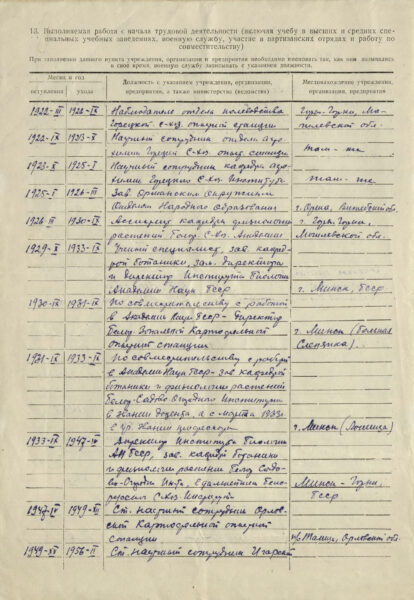 13. Выполняемая работа с начала трудовой деятельности (включая учебу в высших и средних спе-
циальных учебных заведениях, военную службу, участие в партизанских отрядах и работу по
совместительству)
При заполнении данного пункта учреждения, организации и предприятия необходимо именовать так, как они назывались
в свое время, военную службу записывать с указанием должности.
Месяц и год
вступления
ухода
Должность с указанием учреждения, организации,
предприятия, а также министерства (ведомства)
Местонахождение учреждения,
организации, предприятия
1922-III 1922-IX Наблюдатель отдела полеводства гор. Горки, Мо-
Горецкой с-хоз. опытной станции гилевской обл.
1922-IX 1923-X Научный сотрудник отдела агро-
химии Горецкой С-хоз. опыт. станции там-же
1923-X 1925-I Научный сотрудник кафедры агро-
химии Горецкого С-хоз. Института там-же
1925-I 1926-III Зав. Оршанским Окружным
Отделом Народного Образования г. Орша, Витебской обл.
1926 III 1930-IX Ассистент кафедры физиологии г. Горки,
растений Белор. С-хоз. Академии Могилевской обл.
1929-X 1933-IX Ученый специалист, зав. кафед-
рой ботаники, зам. директора
и директор Института Биологии
Академии Наук БССР г. Минск, БССР
1930-IX 1931-IX По совместительству с работой
в Академии Наук БССР - директор
Белор. Зональной Картофельной г. Минск (Большая
опытной станции Слепянка).
1931-IX 1933-IX По совместительству с работой
в Академии Наук БССР - зав. кафедрой
ботаники и физиологии растений
Белор. Садово-Огородного Института
в звании доцента, а с марта 1933г.
в уч. звании профессора г. Минск (Лошица)
1933-IX 1947-IV Директор Института Биологии
АН БССР, зав. кафедрой ботаники
и физиологии растений Белор. Садо-
во-Огородн. Инта, в дальнейшем Бело- Минск - Горки,
русского С.хоз. Института БССР
1947-IV 1949-XII Ст. научный сотрудник Орлов-
ской Картофельной опытной
станции Орловской обл.
1949-XII 1956-II Ст. научный сотрудник Игарской